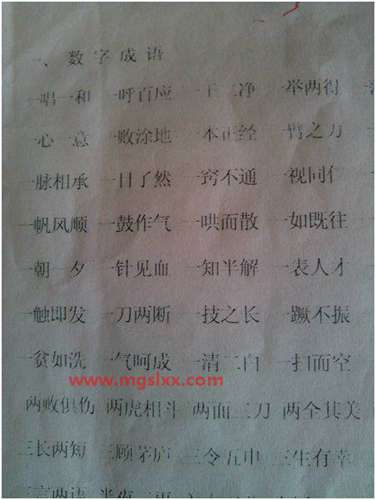 一、数字成语
一唱一和 一呼百应 一干二净 一举两得
一心一意 一败涂地 一本正经 一臂之力
一脉相承 一目了然 一窍不通 一视同仁
一帆风顺 一鼓作气 一哄而散 一如既往
一朝一夕 一针见血 一知半解 一表人才
一触即发 一刀两断 一技之长 一蹶不振
一贫如洗 一气呵成 一清二白 一扫而空
www.mgslxx.com
两败俱伤 两虎相斗 两面三刀 两全其美
三长两短 三顾茅庐 三令五申 三生有幸
三言两语